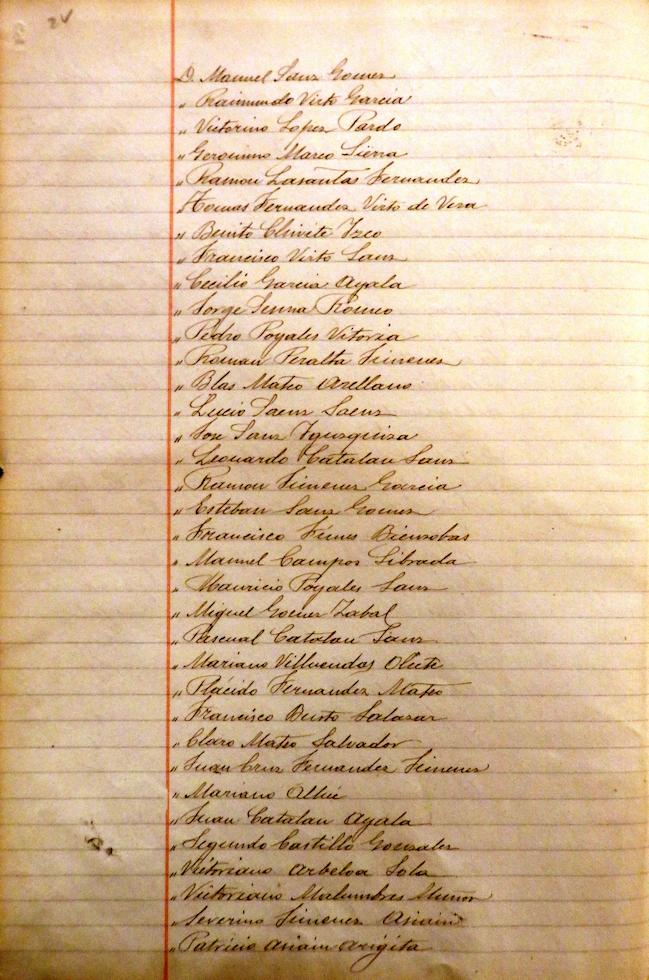 D. Manuel Sanz Gomez
" Raimundo Virto Garcia
" Victorino Lopez Pardo
" Geronimo Marco Sierra
" Ramon Lasantas Fernandez
Tomas Fernandez Virto de Vera
" Benito Chivite Yzco
" Francisco Virto Sanz
" Cecilio Garcia Ayala
" Jorge Romeo
" Pedro Poyales Vitoria
" Roman Peralta Jimenez
" Blas Mateo Arellano
" Lucio Saenz Saenz
" Jose Sanz Yguzquiza
" Leonardo Catalan Sanz
" Ramon Jimenez Garcia
" Esteban Sanz Gomez
" Francisco Bienzobas
" Manuel Campos Librada
" Mauricio Poyales Sanz
" Miguel Gomez Zabal
" Pascual Catalan Sanz
" Mariano Villuendas Olcete
" Plácido Fernandez Mateo
" Francisco Salazar
" Claro Mateo Salvador
" Juan Cruz Fernandez Jimenez
" Mariano Allué
" Juan Catalan Ayala
" Segundo Castillo Gonzalez
" Victoriano Arbeloa Sola
" Victoriano Malumbres Muñoz
" Severino Jimenez Asiain
" Patricio Asiain Arigita